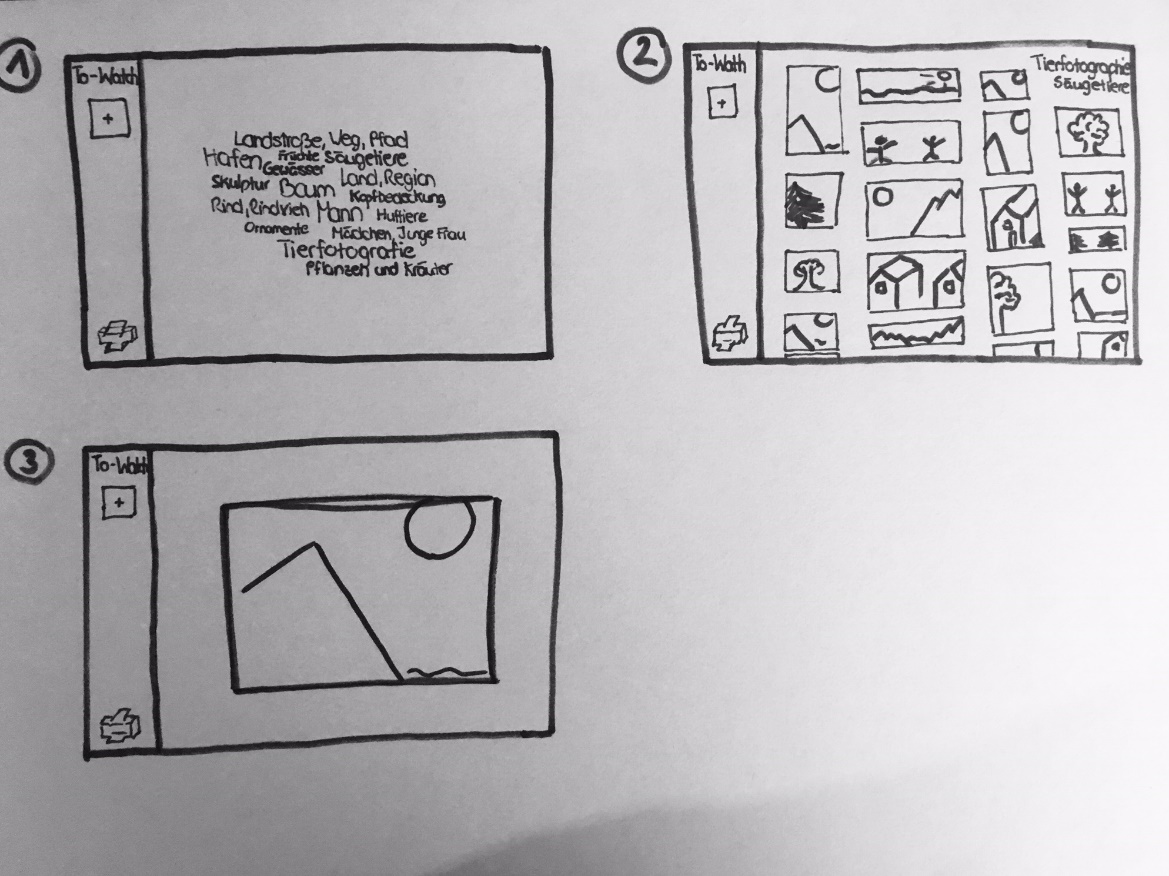 1
To-Watch
+
Landstraße, Weg, Pfad
Hafen Früchte Säugetiere
Gewässer
Skulptur Baum Land, Region
Kopfbedeckung
Rind, Rindvieh Mann Huftiere
Ornamente Mädchen, Junge Frau
Tierfotografie
Pflanzen und Kräuter
2
To-Wath
+
Tierfotographie
Säugetiere
3
To-Watch
+